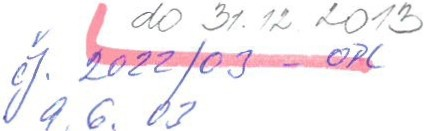 do 31.12.2013
čj. 2022/03 - OPL
9.6.03